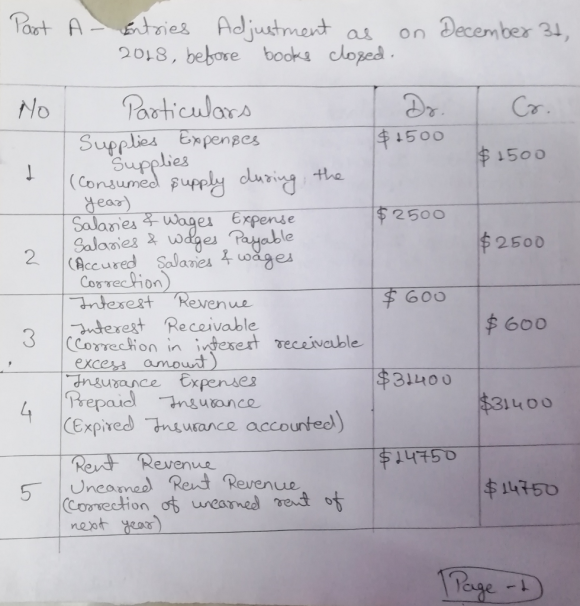 Part A - Entries Adjustment as on December 31,
2018, before books closed.
No Particulars Dr. Cr.
1 Supplies Expenses $1500
Supplies $1500
(Consumed supply during the
year)
2 Salaries & Wages Expense $2500
Salaries & Wages Payable $2500
(Accured Salaries & wages
Correction)
3 Interest Revenue $600
Interest Receivable $600
(Correction in interest receivable
excess amount)
4 Insurance Expenses $31400
Prepaid Insurance $31400
(Expired Insurance accounted)
5 Rent Revenue $14750
Unearned Rent Revenue $14750
(Correction of unearned rent of
next year)
Page - 1